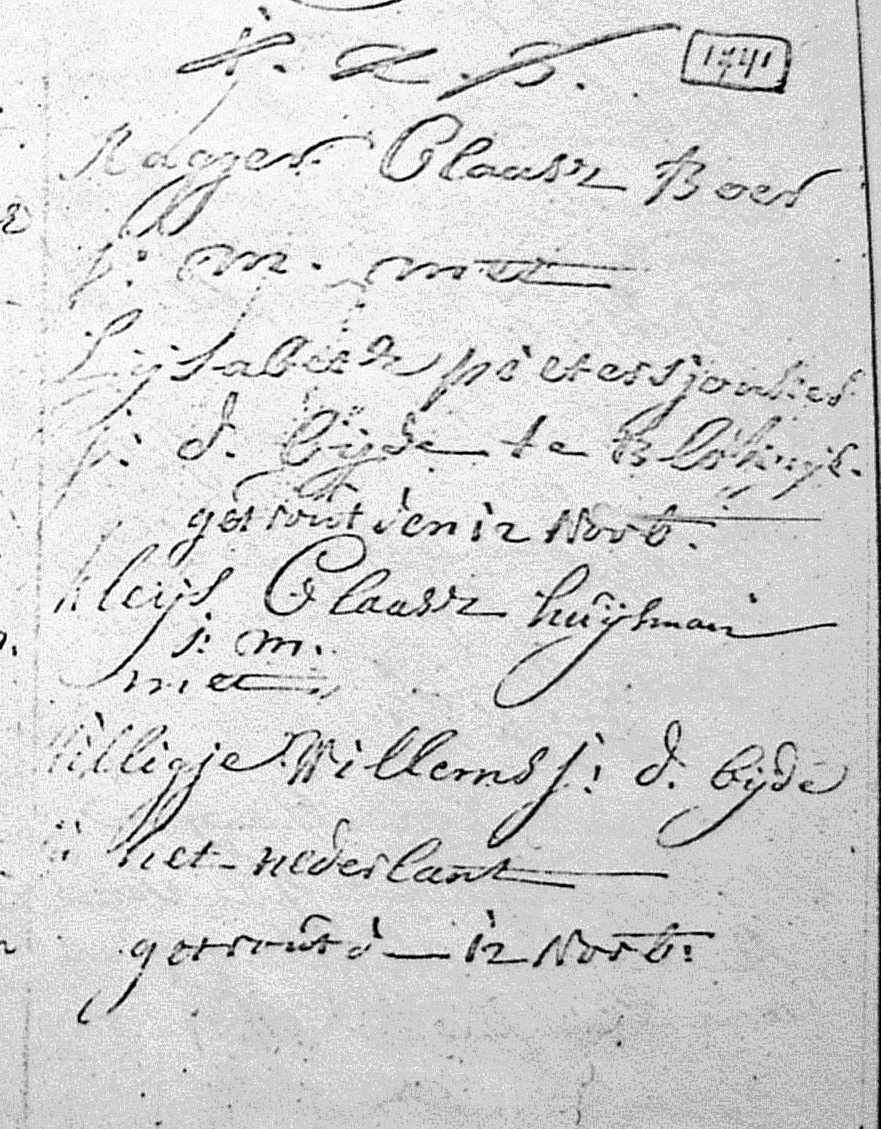 1741
Claasz Boer
j: m. met
Lijsabeth pieters jonkes
j: d. bijde te Blokzijl.
getrout den 12 Novb.
kleijs Claasz huijsman
j: m.
met
Willems j: d. bijde
het nederlant
getrout d 12 Novb: